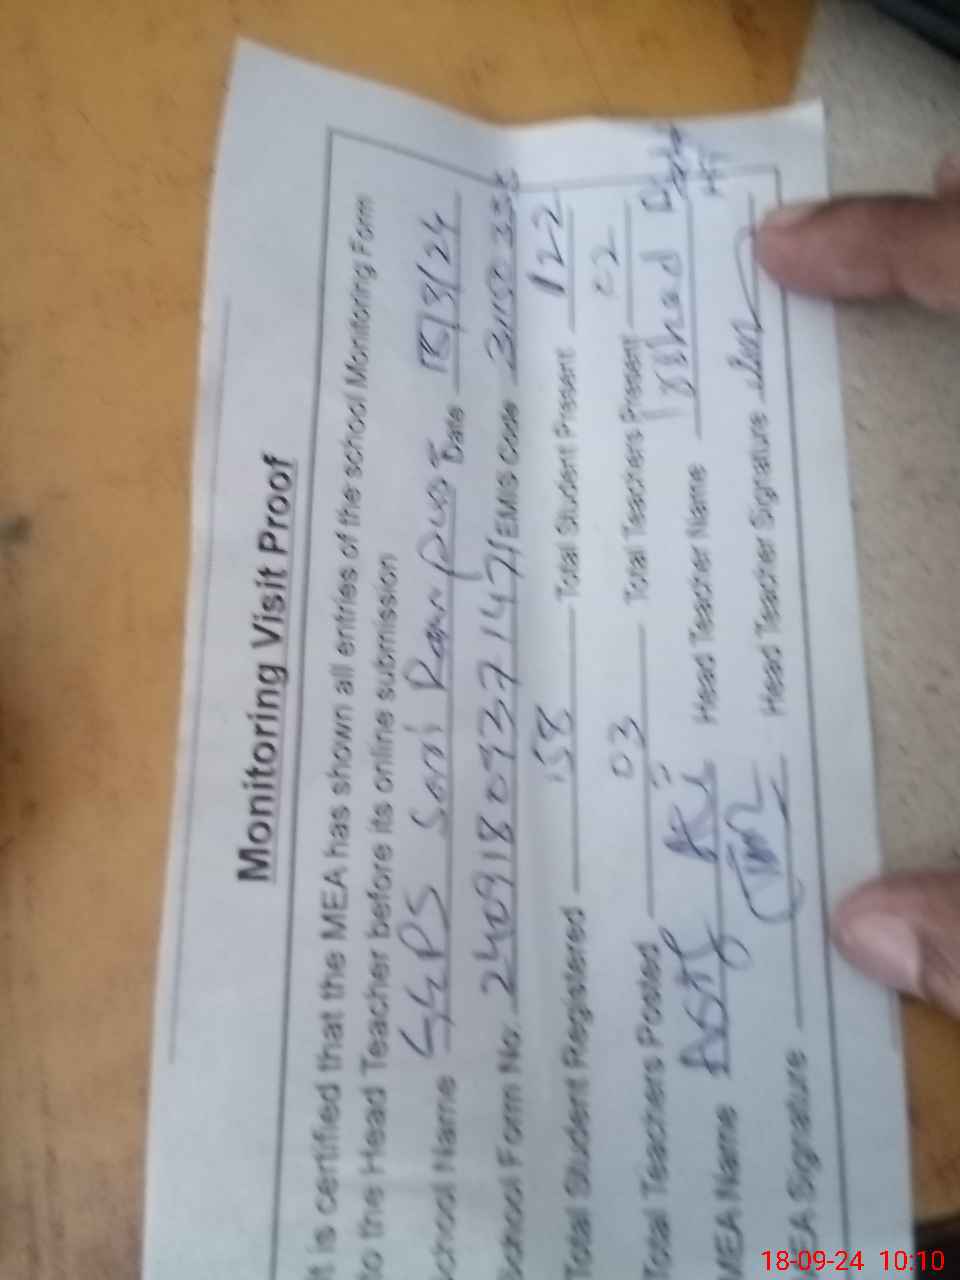 Monitoring Visit Proof
It is certified that the MEA has shown all entries of the school Monitoring Form
to the Head Teacher before its online submission
School Name GGPS Sarai Ranpur Date 18/3/24
School Form No. 2409180937147 EMIS Code
Total Student Registered 158 Total Student Present 122
Total Teachers Posted 03 Total Teachers Present 02
MEA Name Asif Ali Head Teacher Name Irshad
MEA Signature Head Teacher Signature
18-09-24 10:10